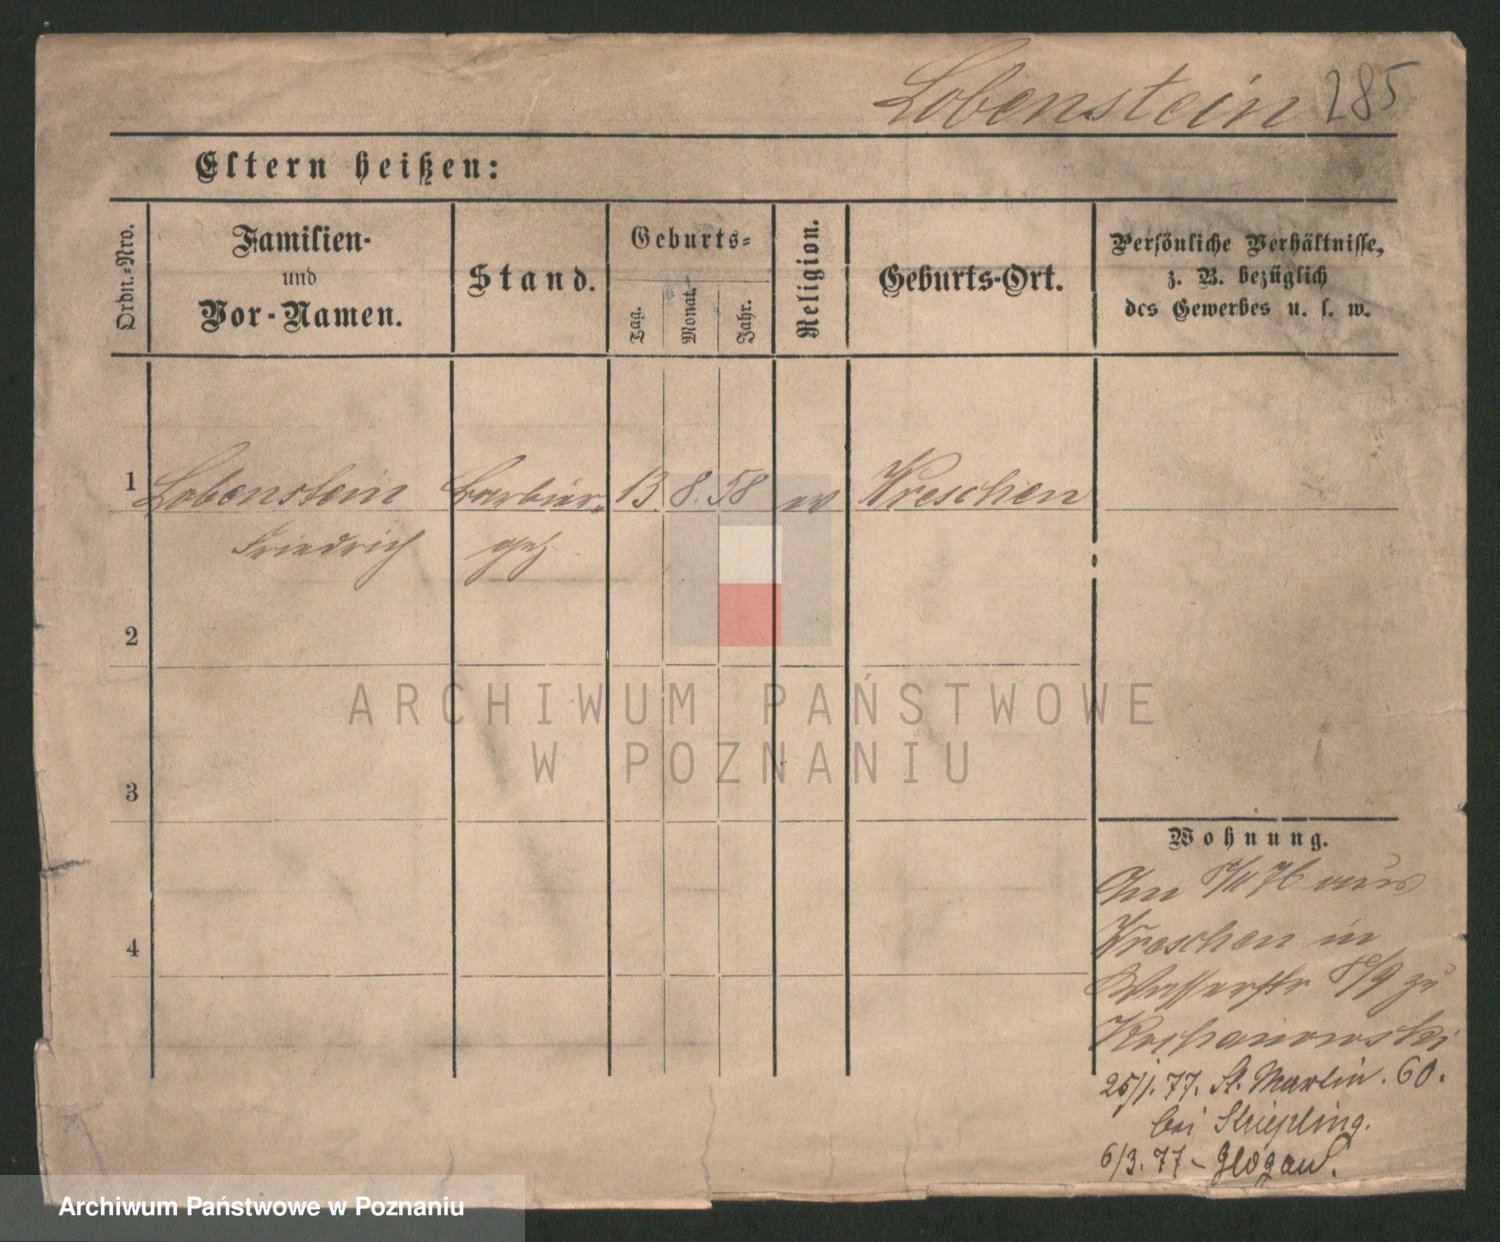 Lobenstein 285
Eltern heißen:
Ordn.=Nro.
Familien-
und
Vor-Namen.
Stand.
Geburts=
Tag.
Monat.
Jahr.
Religion.
Geburts-Ort.
Persönliche Verhältnisse,
z. B. bezüglich
des Gewerbes u. s. w.
1 Lobenstein Barbier 13 8. 58 ev Wreschen
Friedrich geh
2
ARCHIWUM PAŃSTWOWE
W POZNANIU
3
Wohnung.
Am 76 aus
4
Wreschen in
Wasserstr 8/9 zu
Kochanowski
25/1. 77. St. Martin. 60.
bei Stiepling.
6/3. 77 - Glogau.
Archiwum Państwowe w Poznaniu